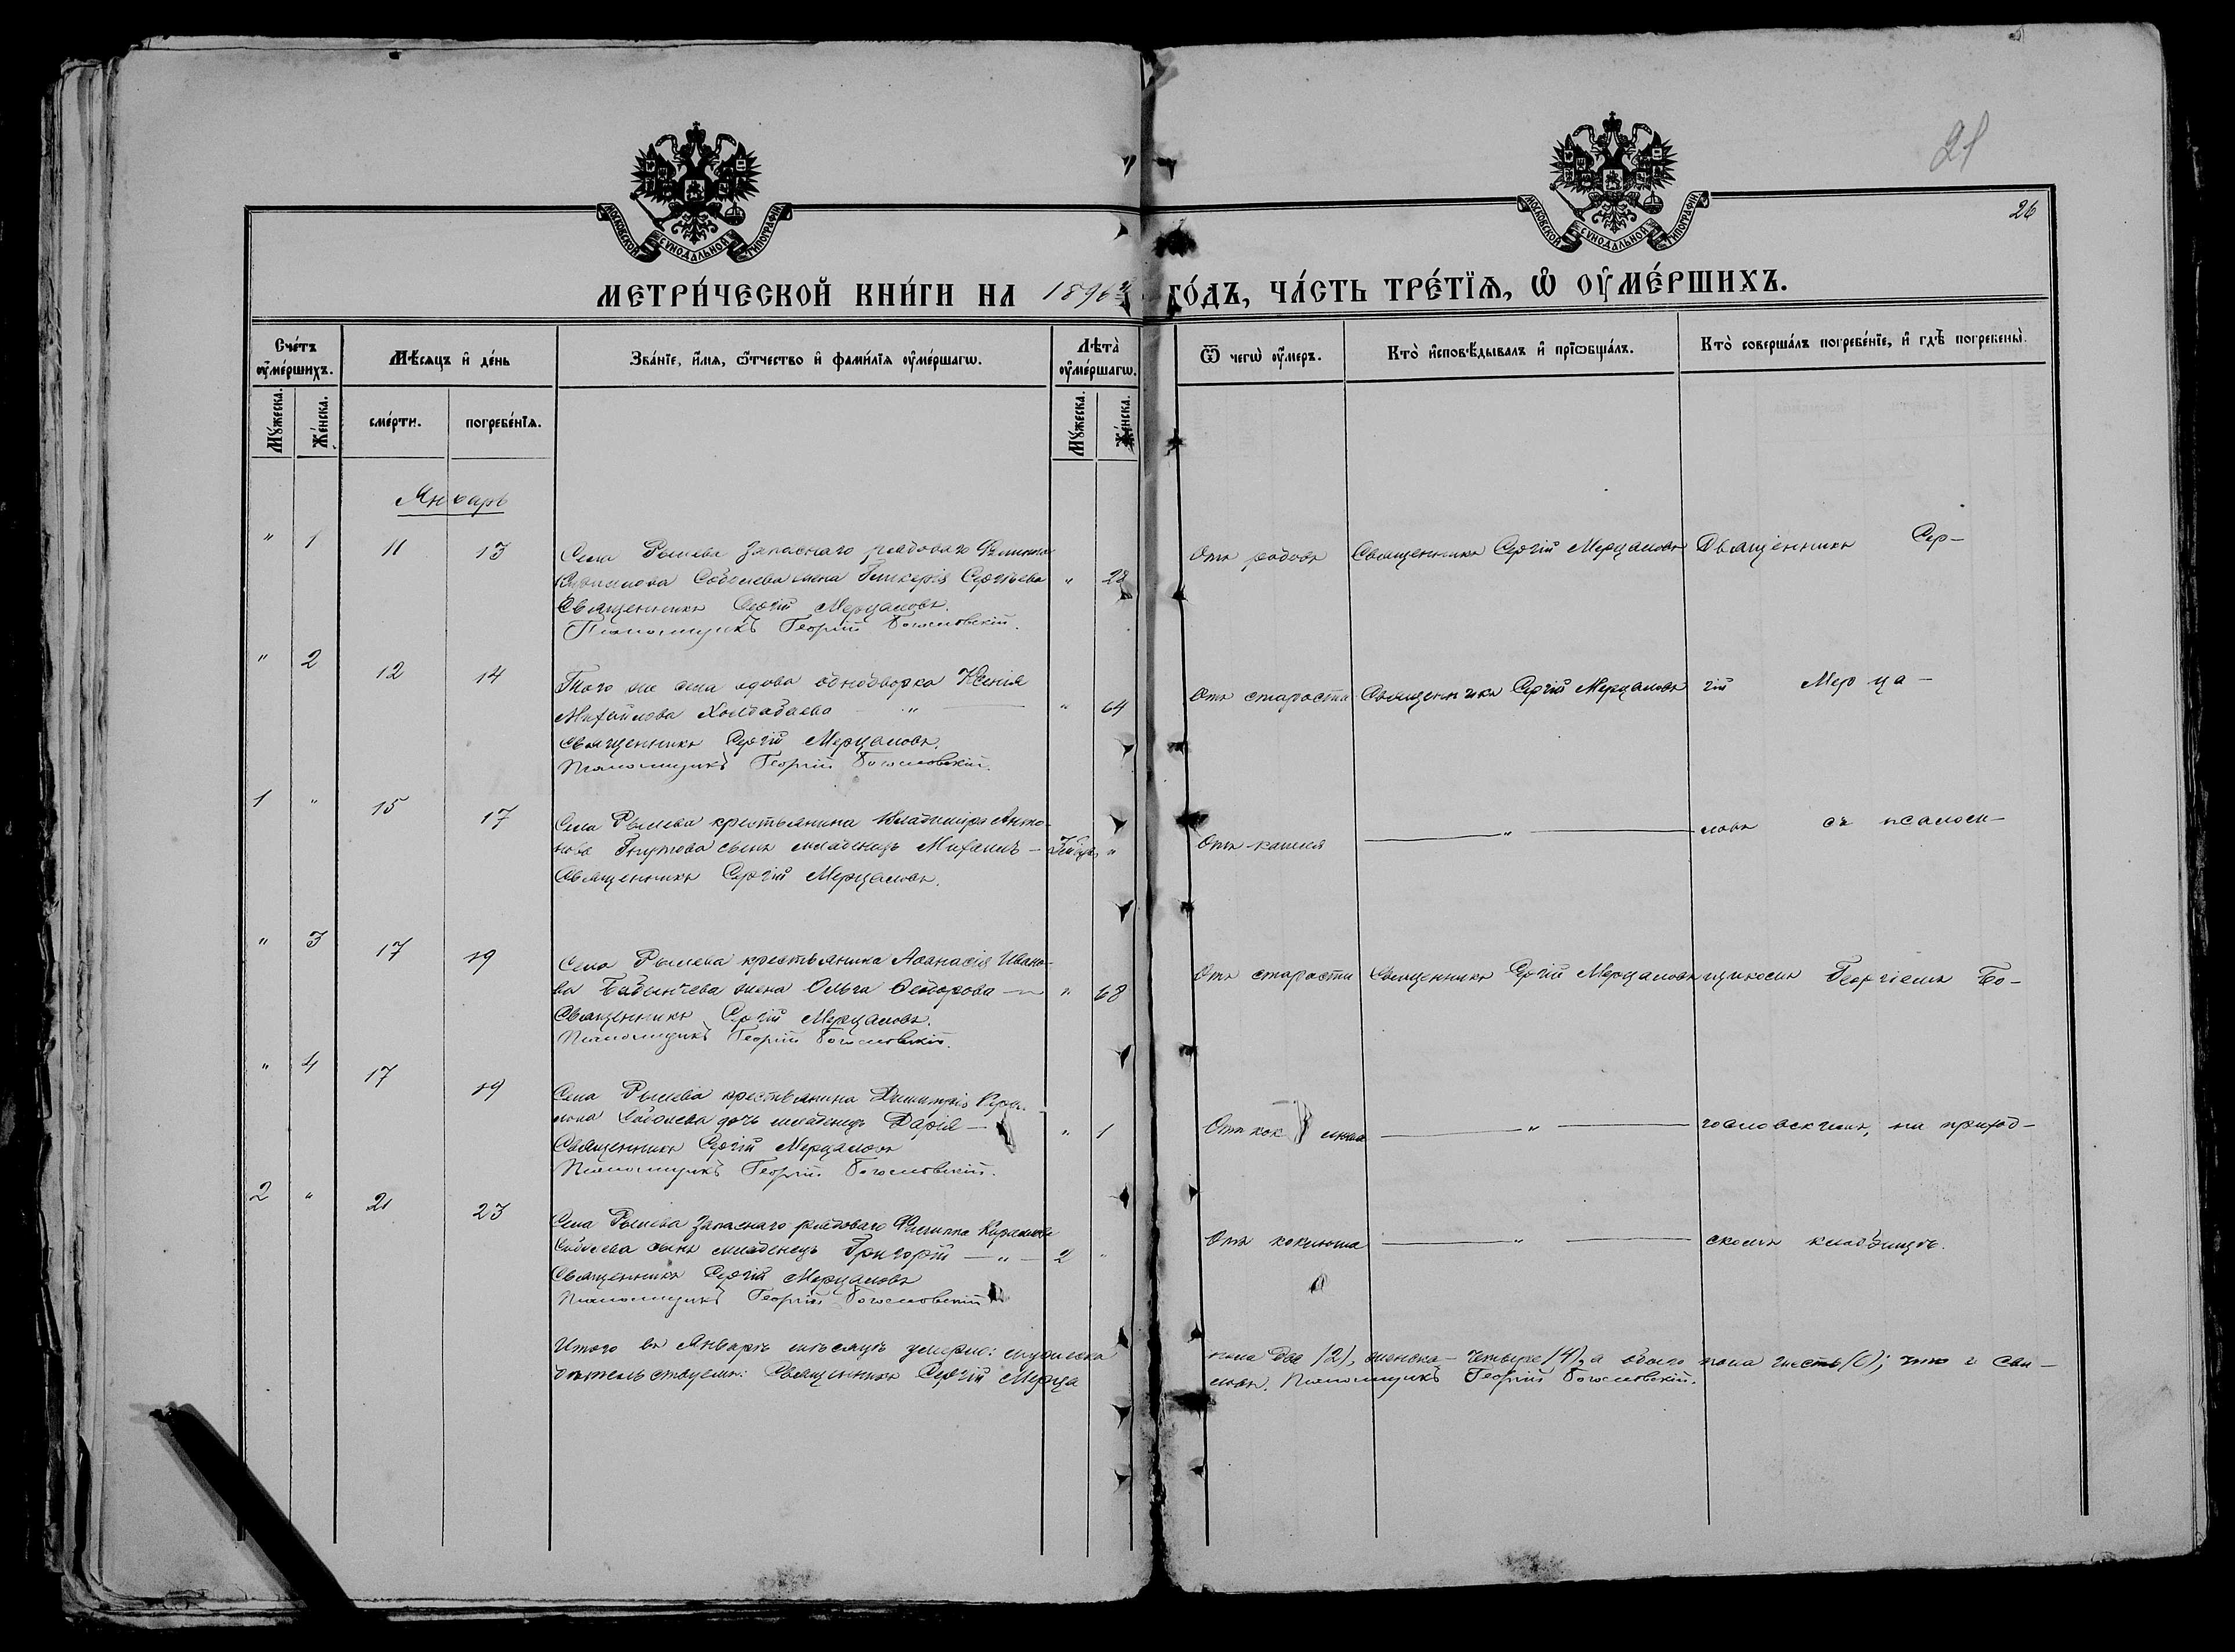 21
26
МОСКОВСКОЙ СѴНОДАЛЬНОЙ ТИПОГРАФІИ
МОСКОВСКОЙ СѴНОДАЛЬНОЙ ТИПОГРАФІИ
МЕТРИ́ЧЕСКОЙ КНИ́ГИ НА 1896й ГО́ДЪ, ЧА́СТЬ ТРЕ́ТЇѦ, Ѡ҆ ОУ҆МЕ́РШИХЪ.
Сче́тъ оу҆ме́ршихъ.
Мꙋ́жеска.
Же́нска.
Мѣ́сяцъ и҆ де́нь
сме́рти.
погребе́нїѧ.
Зва́нїе, и҆́мѧ, ѻ҆́тчество и҆ фами́лїѧ оу҆ме́ршагѡ.
Лѣта̀ оу҆ме́ршагѡ.
Мꙋ́жеска.
Же́нска.
Ѿ чегѡ̀ оу҆́меръ.
Кто̀ и҆сповѣ́дывалъ и҆ прїѡбща́лъ.
Кто̀ соверша́лъ погребе́нїе, и҆ гдѣ̀ погребены̀.
Январь
" 1 11 13 Села Рылева запаснаго рядоваго Филиппа
Соболева жена Гликерія Сергѣева " 28
Священникъ Сергій Мерцаловъ.
Псаломщикъ Георгій Богословскій.
Отъ родовъ Священникъ Сергій Мерцаловъ Священникъ Сер-
" 2 12 14 Того же села вдова однодворка Ксенія
Михайлова " " 64
Священникъ Сергій Мерцаловъ.
Псаломщикъ Георгій Богословскій.
Отъ старости Священникъ Сергій Мерцаловъ гій Мерца-
1 " 15 17 Села Рылева крестьянина Владиміра Анто-
нова сынъ младенецъ Михаилъ - "
Священникъ Сергій Мерцаловъ.
Отъ кашля " ловъ съ псалом-
" 3 17 19 Села Рылева крестьянина Аѳанасія Ивано-
ва жена Ольга Ѳеодорова " 68
Священникъ Сергій Мерцаловъ.
Псаломщикъ Георгій Богословскій.
Отъ старости Священникъ Сергій Мерцаловъ щикомъ Георгіемъ Бо-
" 4 17 19 Села Рылева крестьянина Димитрія
Соболева дочь младенецъ Дарія - " 1
Священникъ Сергій Мерцаловъ
Псаломщикъ Георгій Богословскій.
Отъ коклюша " гословскимъ, на приход-
2 " 21 23 Села Рылева запаснаго рядоваго Филиппа
Соболева сынъ младенецъ Григорій - " - 2 "
Священникъ Сергій Мерцаловъ
Псаломщикъ Георгій Богословскій
Отъ коклюша " скомъ кладбищѣ.
Итого въ Январѣ мѣсяцѣ умерло: мужеска пола два (2), женска - четыре (4), а обоего пола шесть (6); что и сви-
дѣтельствуемъ: Священникъ Сергій Мерцаловъ. Псаломщикъ Георгій Богословскій.